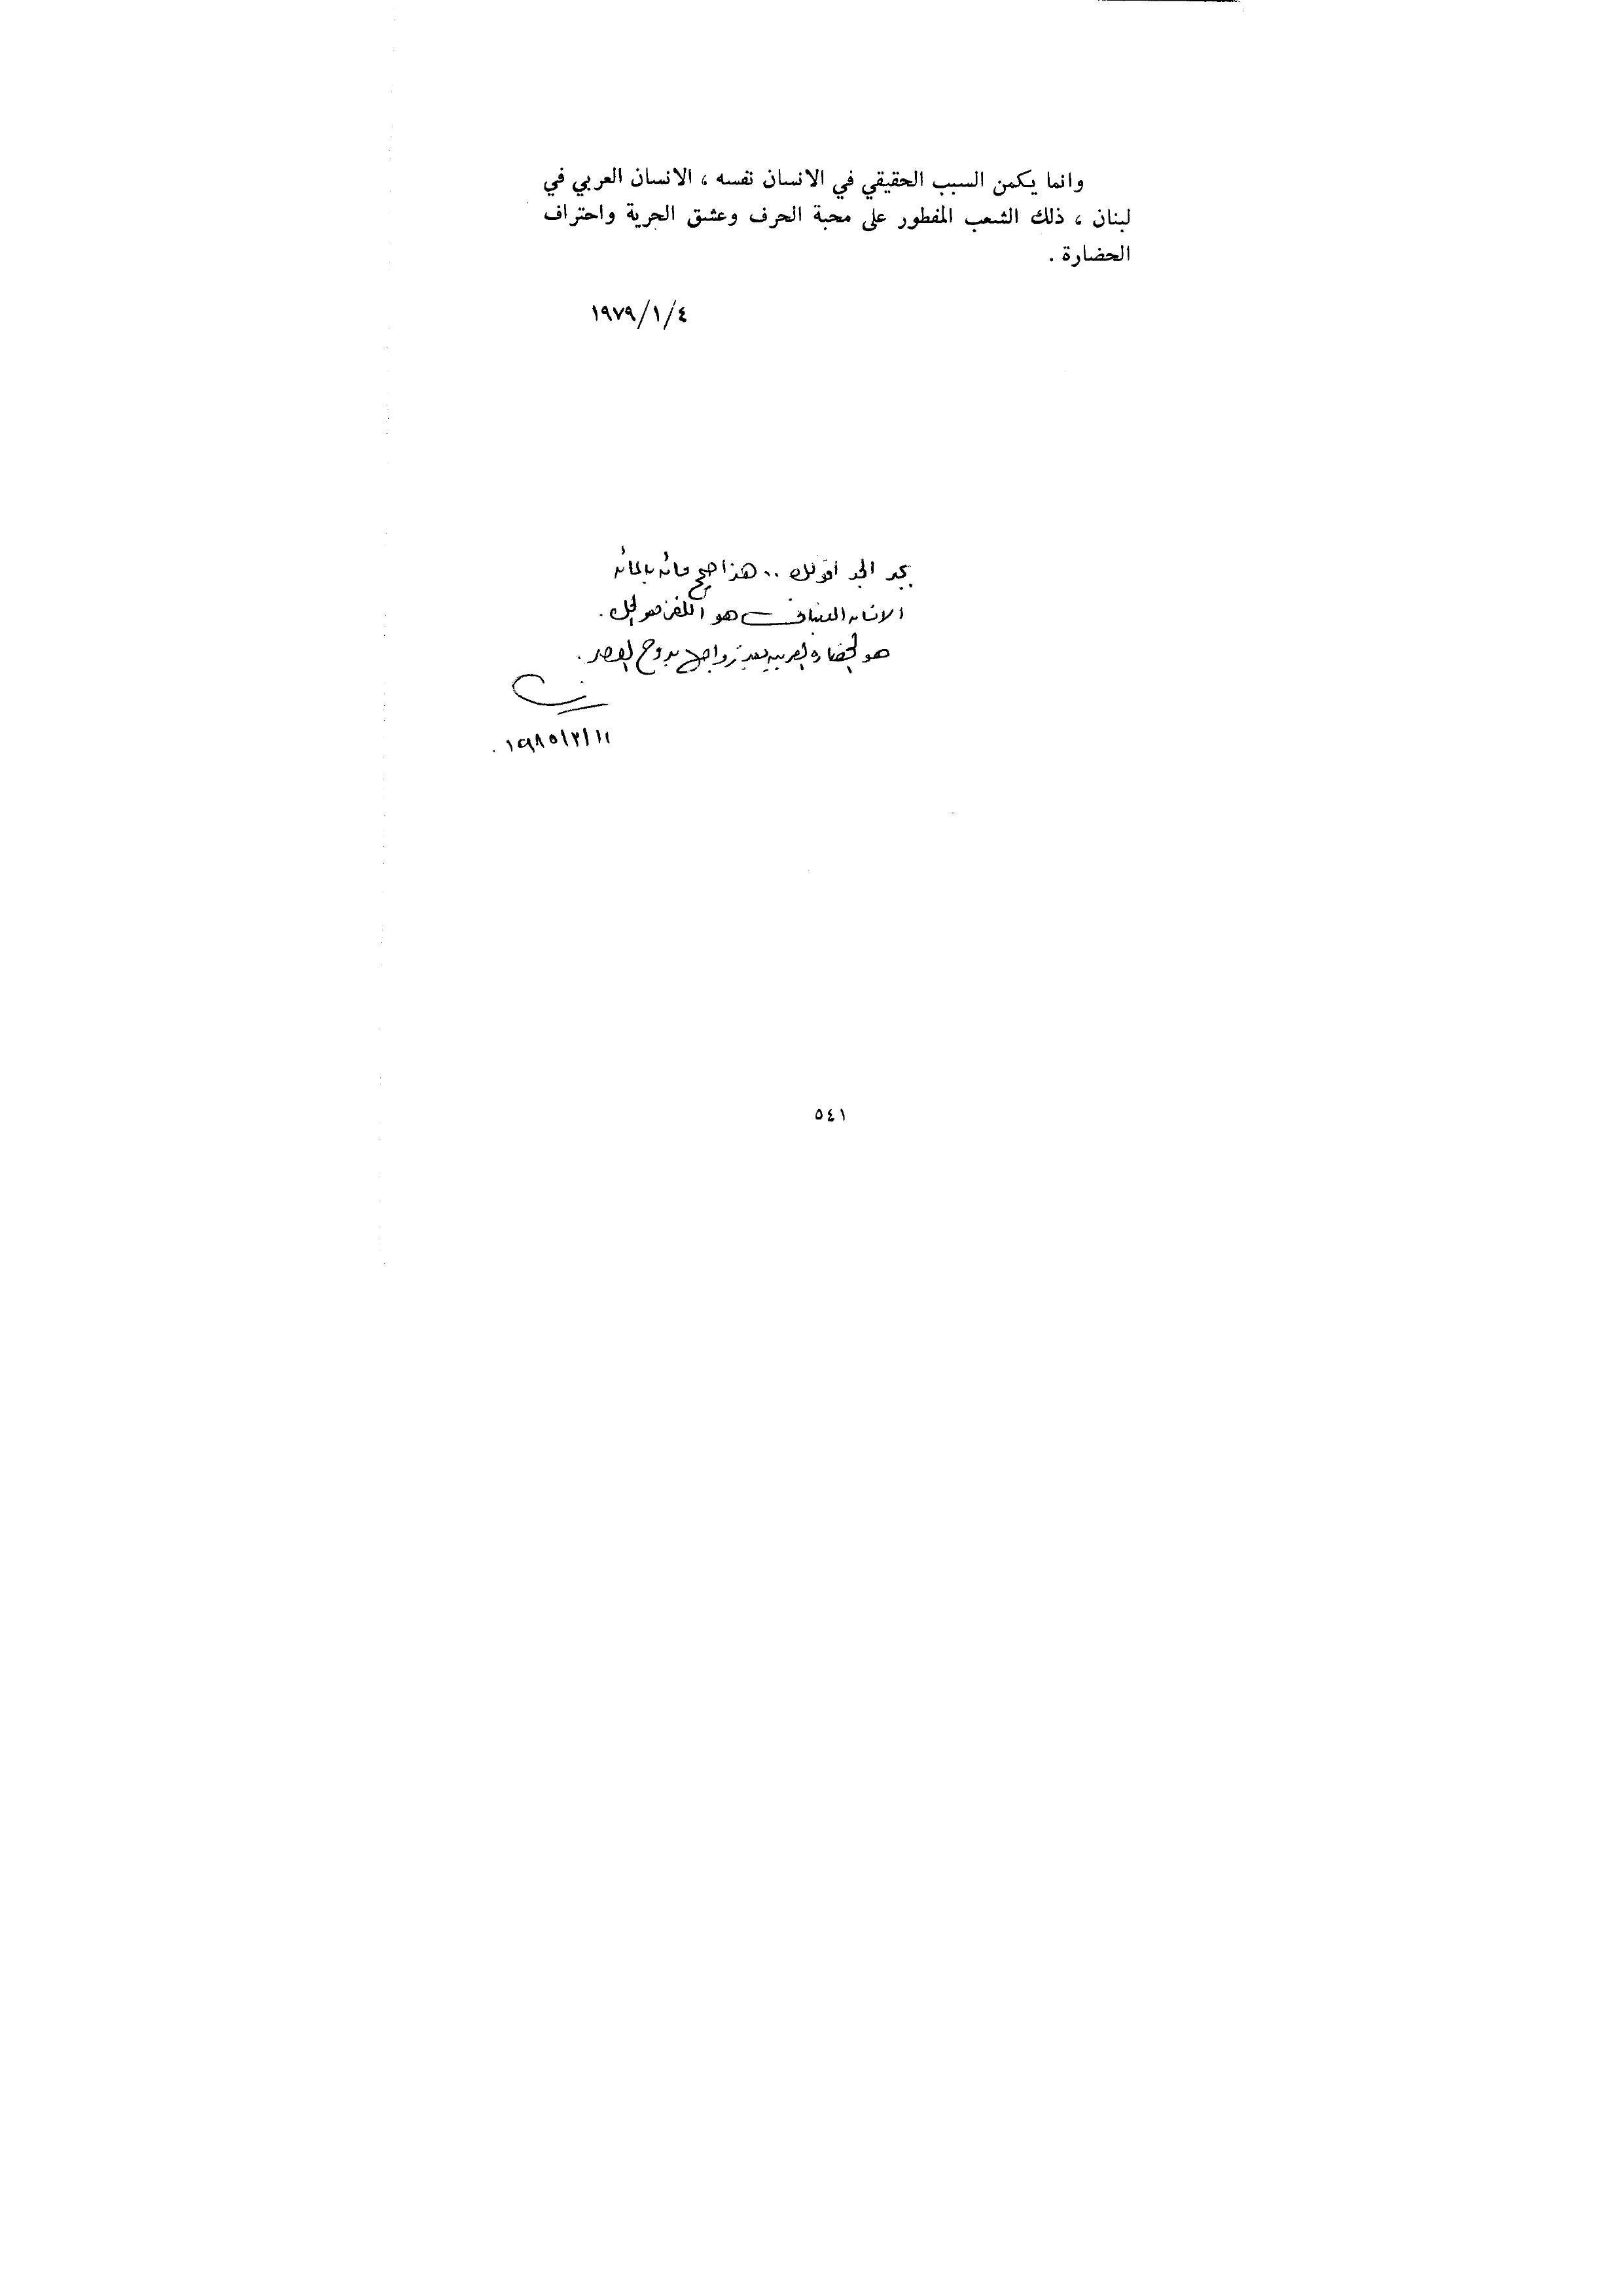 وانما يكمن السبب الحقيقي في الانسان نفسه ، الانسان العربي في
لبنان ، ذلك الشعب المفطور على محبة الحرف وعشق الحرية واحتراف
الحضارة .
١٩٧٩/١/٤
بجد الجد أقولك .. هذا صحيح مائه بالمائه
الانسان اللبناني هو اللغز وهو الحل .
هو الحضاره العربيه بعد زواجها بروح العصر .
١٩٨٥/٢/١١ .
٥٤١